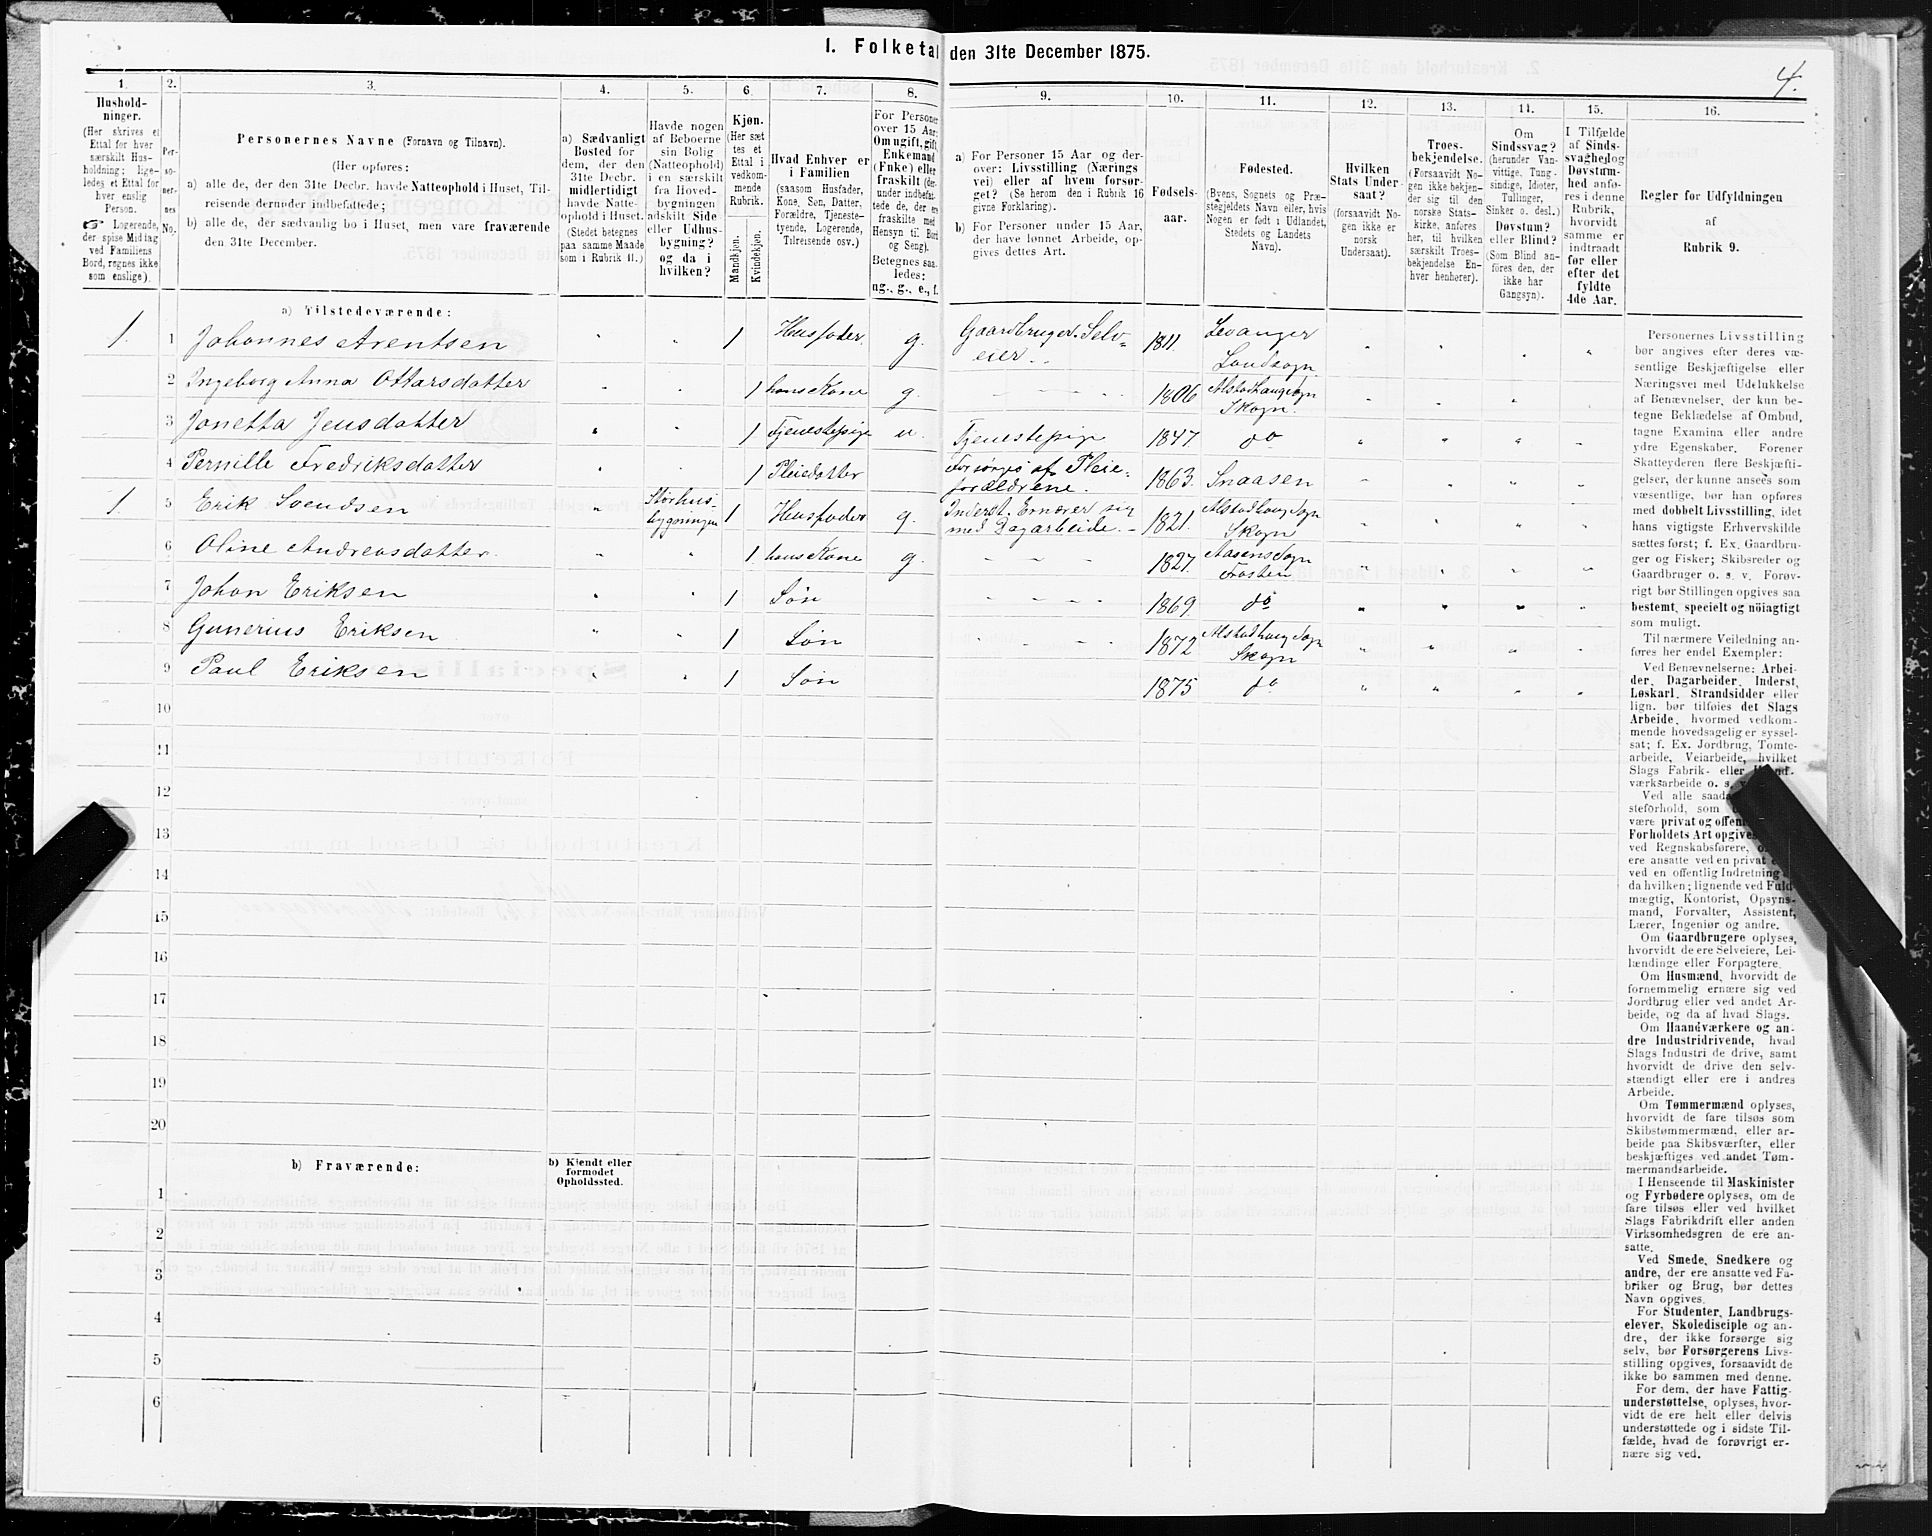 I. Folketal den 31te December 1875.
4.
1.
Husholdninger.
(Her skrives et
Ettal for hver
særskilt Husholdning;
ligeledes
et Ettal for
hver enslig
Person.
Logerende,
der spise Middag
ved Familiens
Bord, regnes ikke
som enslige).
2.
Personernes
No.
3.
Personernes Navne (Fornavn og Tilnavn).
(Her opføres:
a) alle de, der den 31te Decbr. havde Natteophold i Huset, Tilreisende derunder indbefattede;
b) alle de, der sædvanlig bo i Huset, men vare fraværende
den 31te December.
4.
a) Sædvanligt
Bosted for
dem, der den
31te Decbr.
midlertidigt
havde Natteophold
i Huset.
(Stedet betegnes
paa samme Maade
som i Rubrik 11.)
5.
Havde nogen
af Beboerne
sin Bolig
(Natteophold)
i en særskilt
fra Hovedbygningen
adskilt Side
eller Udhusbygning?
og da i
hvilken?
6.
Kjøn.
(Her sættes
et
Ettal i
vedkommende
Rubrik.
Mandkjøn.
Kvindekjøn.
7.
Hvad Enhver er
i Familien
(saasom Husfader,
Kone, Søn, Datter,
Forældre, Tjenestetyende,
Logerende,
Tilreisende osv.)
8.
For Personer
over 15 Aar:
Om ugift, gift,
Enkemand
(Enke) eller
fraskilt
9.
a) For Personer 15 Aar og derover:
Livsstilling (Næringsvei)
eller af hvem forsørget?
(Se herom den i Rubrik 16
givne Forklaring).
b) For Personer under 15 Aar,
der have lønnet Arbeide, opgives
dettes Art.
10.
Fødselsaar.
11.
Fødested.
(Byens, Sognets og Præstegjeldets
Navn eller, hvis
Nogen er født i Udlandet,
Stedets og Landets
Navn).
12.
Hvilken
Stats Undersaat?
(forsaavidt Nogen
ikke er
norsk
Undersaat).
13.
Troesbekjendelse.
(Forsaavidt Nogen
ikke bekjender
sig til den
norske Statskirke,
anføres
her, til hvilken
særskilt Troesbekjendelse
Enhver
henhører).
14.
Om
Sindssvag?
(herunder Vanvittige,
Tungsindige,
Idioter,
Tullinger,
Sinker o. desl.)
Døvstum?
eller Blind?
(Som Blind anføres
den, der
ikke har
Gangsyn).
15.
I Tilfælde
af Sindssvaghed
og
Døvstumhed
anføres
i denne
Rubrik,
hvorvidt
samme er
indtraadt
før eller
efter det
fyldte
4de Aar.
16.
Regler for Udfyldningen
af
Rubrik 9.
a) Tilstedeværende:
1. 1 Johannes Arentsen " " 1 Husfader. g. Gaardbruger. Selveier. 1811. Levanger Landsogn. " " " "
2 Ingeborg Anna Ottarsdatter " " 1 hans Kone g. 1806 Alstadhaug Sogn Skogn. " " " "
3 Janetta Jensdatter " " 1 Tjenestepige u. Tjenestepige 1847 do " " " "
4 Pernille Fredriksdatter " " 1 Pleiedatter Forsørges af Pleieforældrene. 1863. Snaasen " " " "
1 5 Erik Svendsen " Størhusbygningen 1 Husfader g. Inderst. Ernærer sig med Dagarbeide. 1821. Alstadhaug Sogn Skogn " " " "
6 Oline Andreasdatter. " " 1. hans Kone g. 1827. Aasens Sogn Frosten " " " "
7 Johan Eriksen " " 1 Søn 1869. do " " " "
8 Gunerius Eriksen " " 1 Søn 1872 Alstadhaug Sogn Skogn " " " "
9 Paul Eriksen " " 1 Søn 1875 do " " " "
10
11
12
13
14
15
16
17
18
19
20
b) Fraværende:
b) Kjendt eller
formodet
Opholdssted.
1
2
3
4
5
6
Personernes Livsstilling
bør angives efter deres væsentlige
Beskjæftigelse eller
Næringsvei med Udelukkelse
af Benævnelser, der kun betegne
Beklædelse af Ombud,
tagne Examina eller andre
ydre Egenskaber. Forener
Skatteyderen flere Beskjæftigelser,
der kunne ansees som
væsentlige, bør han opføres
med dobbelt Livsstilling, idet
hans vigtigste Erhvervskilde
sættes først; f. Ex. Gaardbruger
og Fisker; Skibsreder og
Gaardbruger o. s. v. Forøvrigt
bør Stillingen opgives saa
bestemt, specielt og nöiagtigt
som muligt.
Til nærmere Veiledning anføres
her endel Exempler:
Ved Benævnelserne: Arbeider,
Dagarbeider, Inderst,
Løskarl, Strandsidder eller
lign. bør tilføies det Slags
Arbeide, hvormed vedkommende
hovedsagelig er sysselsat;
f. Ex. Jordbrug, Tomtearbeide,
Veiarbeide, hvilket
Slags Fabrik- eller
Om Gaardbrugere oplyses,
hvorvidt de ere Selveiere, Leilændinge
eller Forpagtere.
Om Husmænd, hvorvidt de
fornemmelig ernære sig ved
Jordbrug eller ved andet Arbeide,
og da af hvad Slags.
Om Haandværkere og andre
Industridrivende, hvad
Slags Industri de drive, samt
hvorvidt de drive den selvstændigt
eller ere i andres
Arbeide.
Om Tømmermænd oplyses,
hvorvidt de fare tilsøs som
Skibstømmermænd, eller arbeide
paa Skibsværfter, eller
beskjæftiges ved andet Tømmermandsarbeide.
I Henseende til Maskinister
og Fyrbødere oplyses, om de
fare tilsøs eller ved hvilket
Slags Fabrikdrift eller anden
Virksomhedsgren de ere ansatte.
Ved Smede, Snedkere og
andre, der ere ansatte ved Fabriker
og Brug, bør dettes
Navn opgives.
For Studenter, Landbrugselever,
Skoledisciple og andre,
der ikke forsørge sig
selv, bør Forsørgerens Livsstilling
opgives, forsaavidt de
ikke bo sammen med denne.
For dem, der have Fattigunderstøttelse,
oplyses, hvorvidt
de ere helt eller delvis
understøttede og i sidste Tilfælde,
hvad de forøvrigt ernære
sig ved.